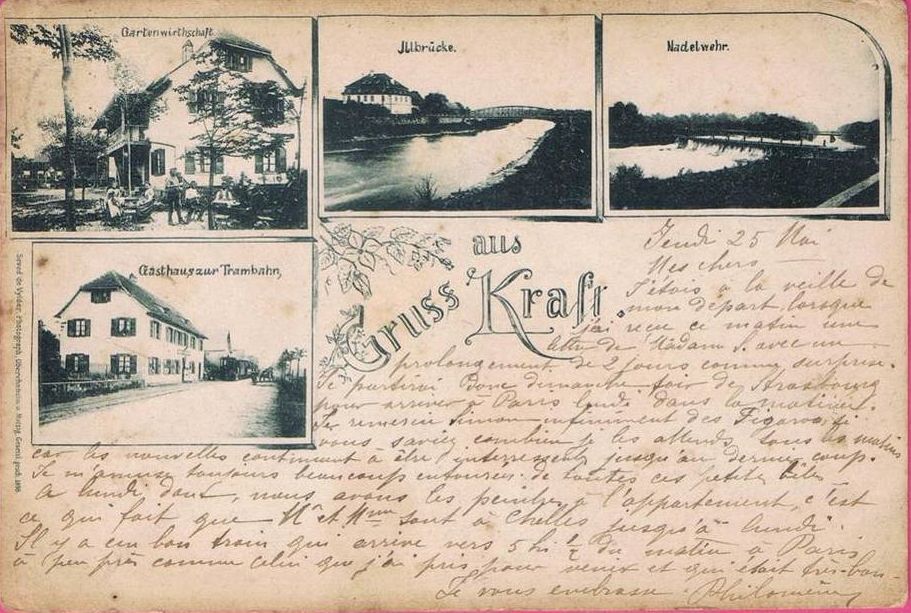 Gartenwirthschaft
Illbrücke.
Nadelwehr.
Gasthaus zur Trambahn,
Gruss aus Kraft.
Jeudi 25 Mai
Mes chers
J'étais à la veille de
mon départ, lorsque
j'ai reçu ce matin une
lettre de Madame S. avec un
prolongement de 2 jours comme surprise.
Je partirai donc dimanche soir de Strasbourg
pour arriver à Paris lundi dans la matinée.
Je remercie Simon infiniment des Figaros, si
vous saviez combien je les attends tous les matins
car les nouvelles continuent à être intéressants jusqu'au dernier coup.
Je m'amuse toujours beaucoup entourée de toutes ces petites bêtes
A lundi donc, nous avons les peintres à l'appartement, c'est
ce qui fait que Mr et Mme sont à Chelles jusqu'à lundi.
Il y a un bon train qui arrive vers 5 h ½ du matin à Paris
à peu près comme celui que j'ai pris pour venir et qui était très bon
Je vous embrasse Philomène
Photograph, Oberehnheim